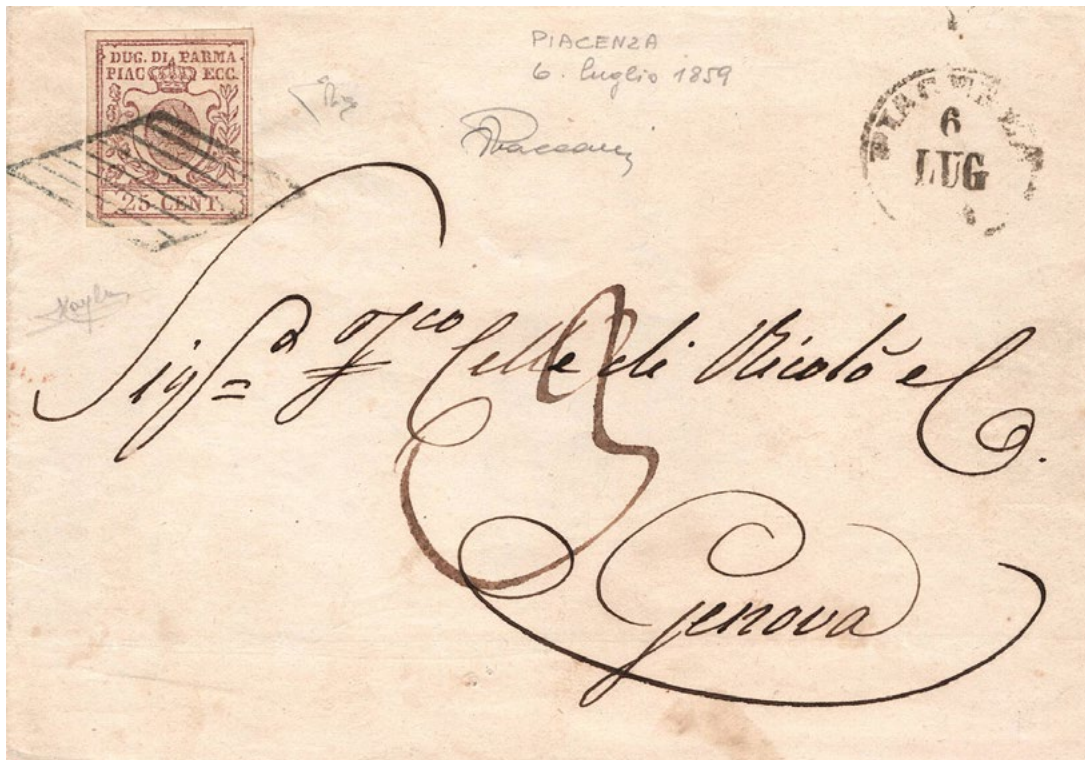 DUC. DI PARMA
PIAC ECC.
25 CENT.
PIACENZA
6. luglio 1859
PIACENZA
6
LUG
Sigr a Fco Celle di Nicolò e C.
3
Genova